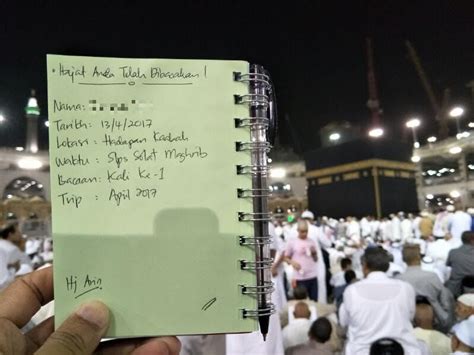 • Hajat Anda Telah Dibacakan!
Nama:
Tarikh: 13/4/2017
Lokasi: Hadapan Kaabah
Waktu: Slps Solat Maghrib
Bacaan: Kali Ke-1
Trip: April 2017
Hj Arin